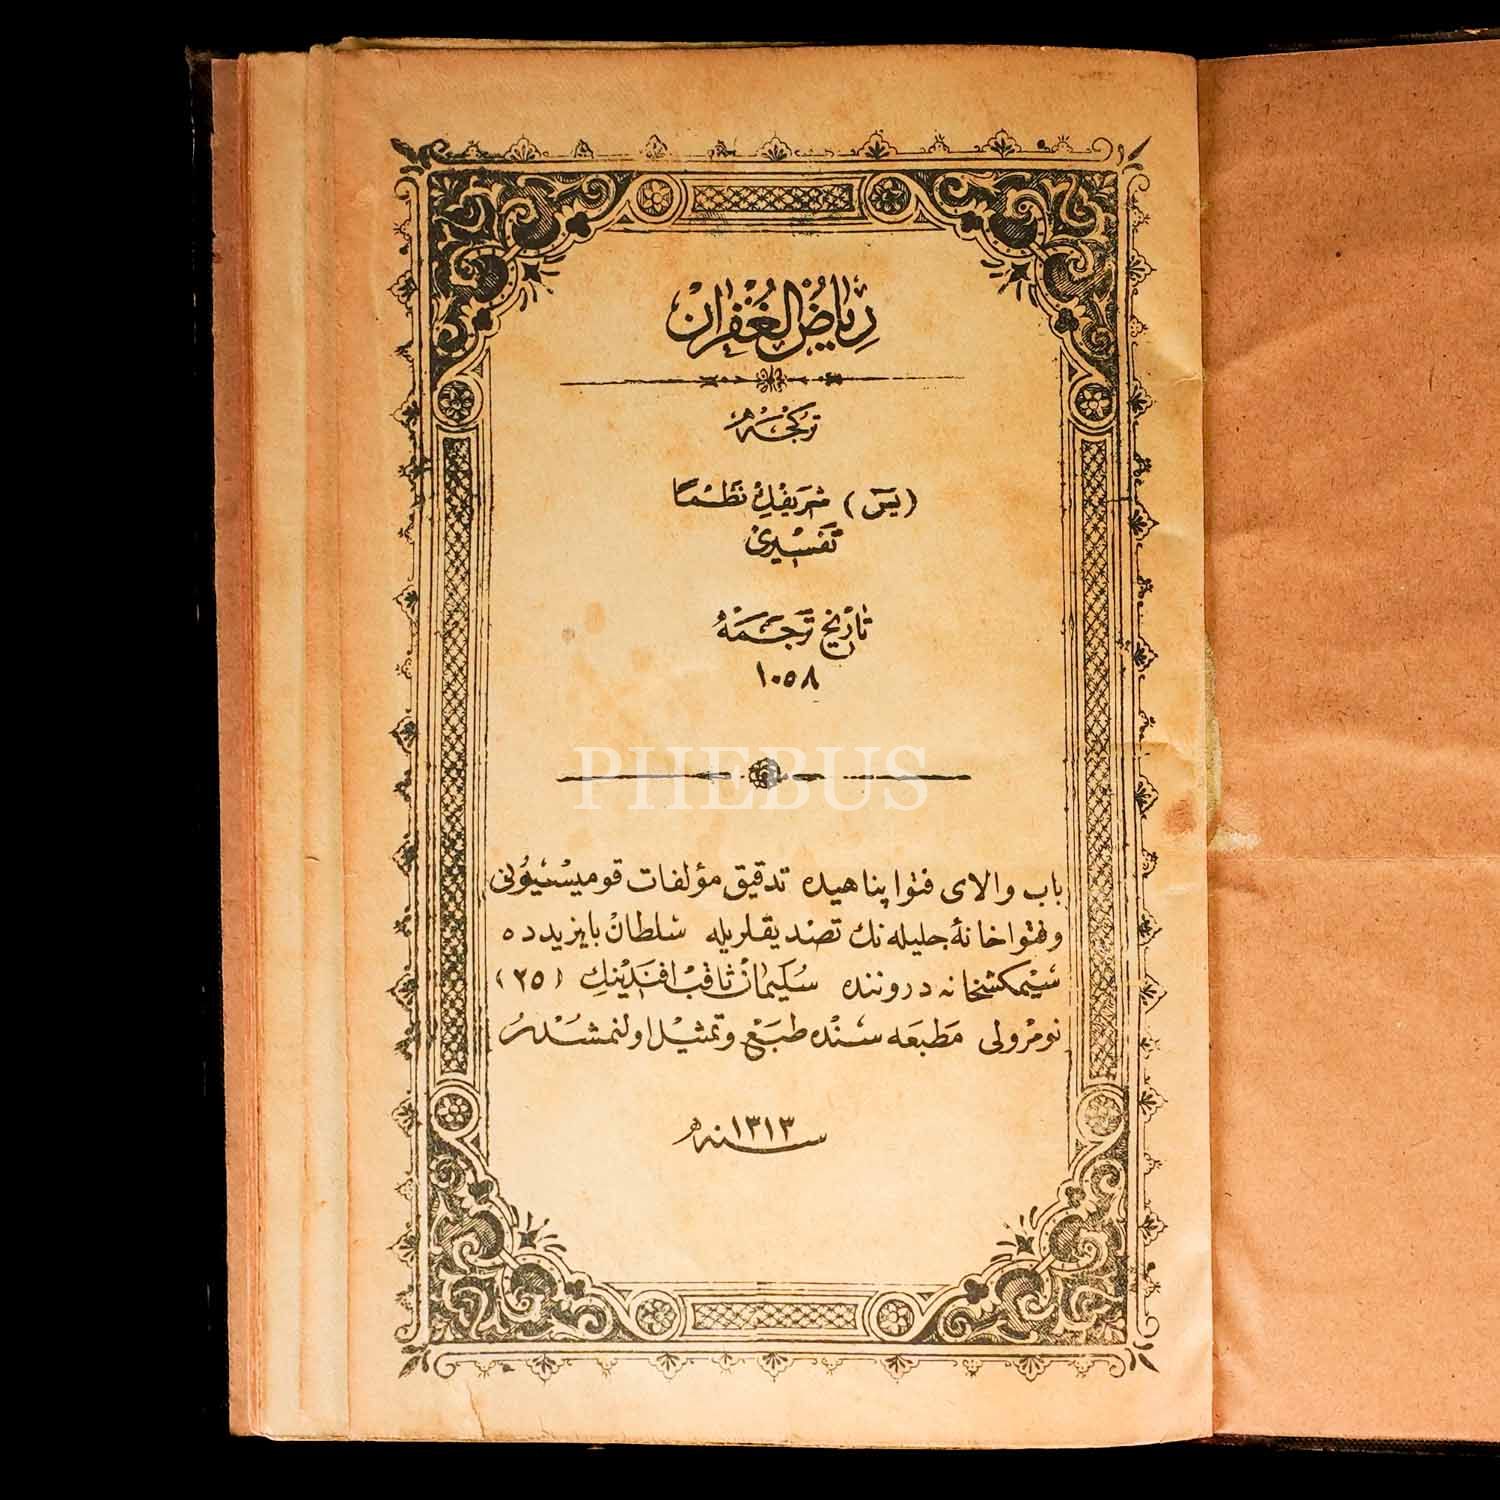 رِيَاضُ الغُفْرَان
تركجه
(يس) شريفك نظماً
تفسيرى
تاريخ ترجمه
١٠٥٨
PHEBUS
باب والاى فتوا پناهيده تدقيق مؤلفات قوميسيونى
وفتواخانهٔ جليله نك تصديقلريله سلطان بايزيدده
سيمكشخانه دروننده سليمان ثاقب افندينك (٢٥)
نومرولى مطبعه سنده طبع وتمثيل اولنمشدر
سنه ١٣١٣